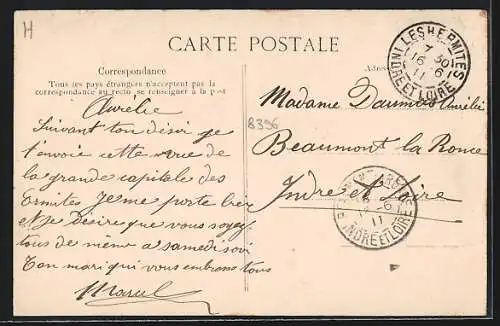 H
CARTE POSTALE
Correspondance
Tous les pays étrangers n'acceptent pas la
correspondance au recto se renseigner à la poste
Aurélie
Suivant ton désir je
t'envoie cette vue de
la grande capitale des
Ermites Je me porte bien
et je désire que vous soyez
tous de même a samedi soir
Ton mari qui vous embrasse tous
Marcel
8396
LES HERMITES
7 30
16 6
11
INDRE ET LOIRE
Madame Daumois Aurélie
Beaumont la Ronce
Indre et Loire
11
INDRE ET LOIRE